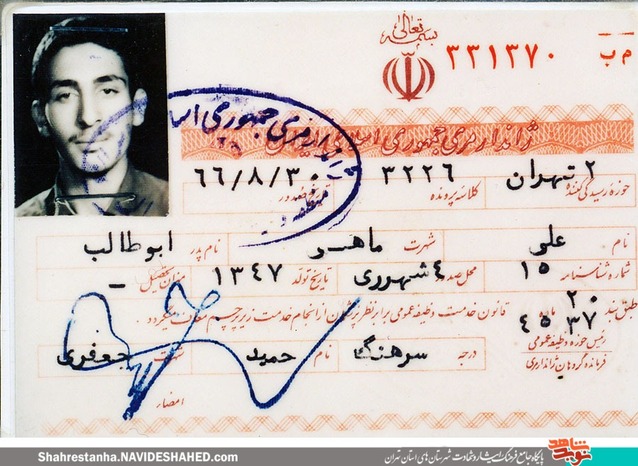 بسمه تعالی
م ب
۳۳۱۳۷۰
ژاندارمری جمهوری اسلامی
حوزه رسیدگی کننده ۲ تهران کلاسه پرونده ۳۲۲۶ تاریخ صدور ۶۶/۸/۳۰
نام علی شهرت ماهر نام پدر ابوطالب
شماره شناسنامه ۱۵ محل صدور ۴ شهرری تاریخ تولد ۱۳۴۷ میزان تحصیل -
طبق بند ۲۰ ماده ۳۷ ۴۵ قانون خدمت وظیفه عمومی برابر نظر پزشکان از انجام خدمت زیر پرچم معاف میگردد.
رئیس حوزه وظیفه عمومی
فرمانده گروهان ژاندارمری
درجه سرهنگ نام حمید شهرت جعفری
امضاء
Shahrestanha.NAVIDESHAHED.com
نوید شاهد
پایگاه جامع فرهنگ ایثار و شهادت شهرستان های استان تهران